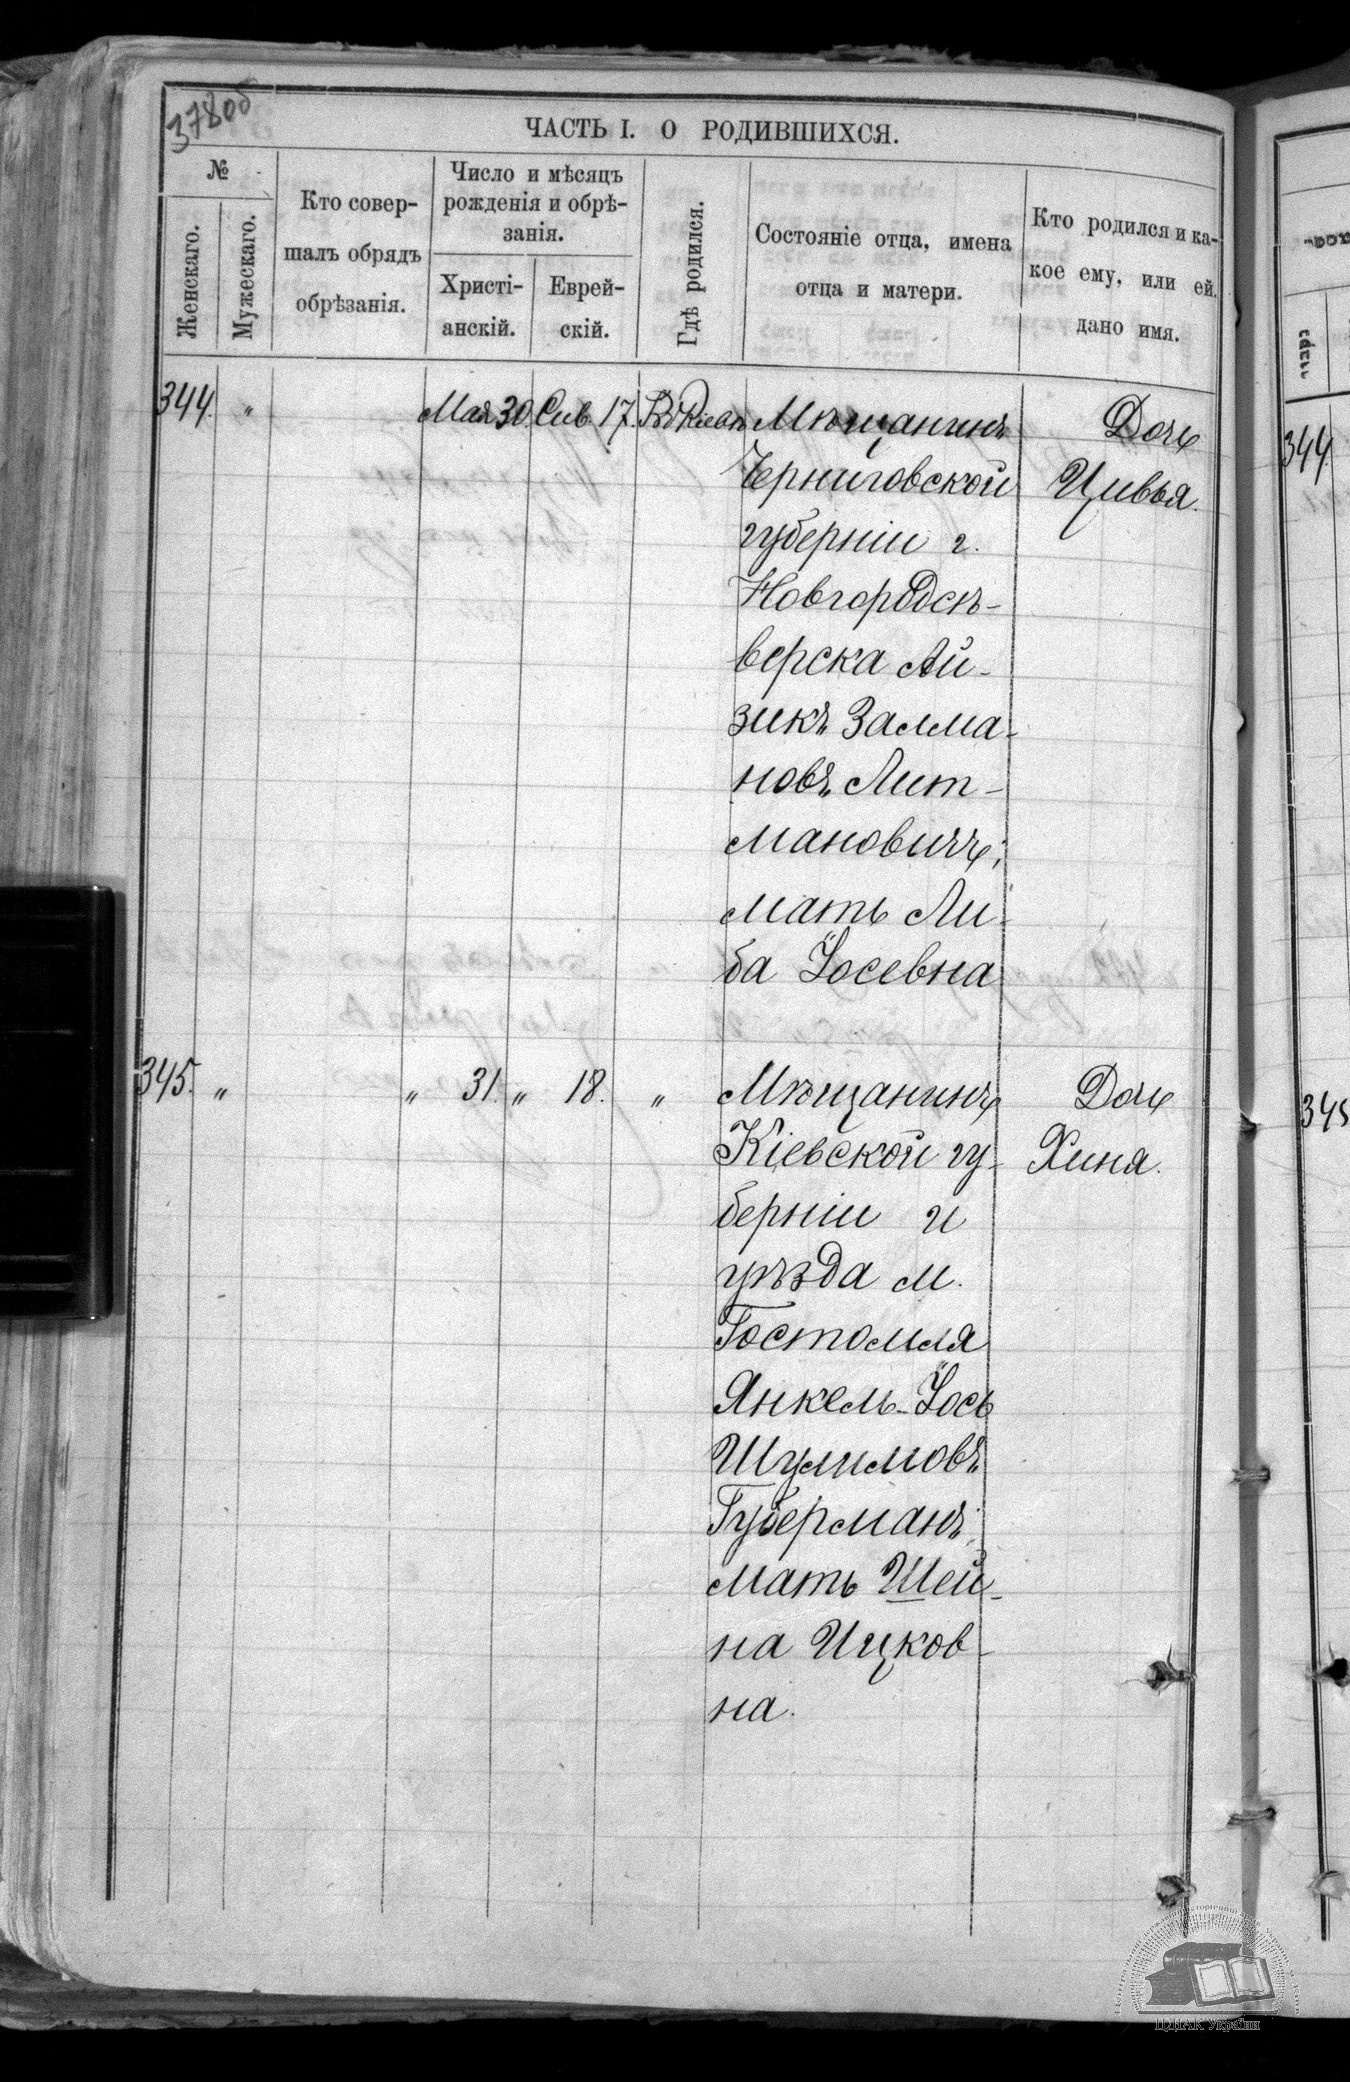 378 об
ЧАСТЬ I. О РОДИВШИХСЯ.
№
Женскаго.
Мужескаго.
Кто совер-
шалъ обрядъ
обрѣзанія.
Число и мѣсяцъ
рожденія и обрѣ-
занія.
Христі-
анскій.
Еврей-
скій.
Гдѣ родился.
Состояніе отца, имена
отца и матери.
Кто родился и ка-
кое ему, или ей.
дано имя.
344. „ Мая 30. Сив. 17. Въ Кіевѣ Мѣщанинъ Дочь
Черниговской Цивья.
губерніи г.
Новгородсѣ-
верска Ай-
зикъ Залма-
новъ Лит-
мановичъ,
мать Ли-
ба Іосевна
345. „ „ 31. „ 18. „ Мѣщанинъ Дочь
Кіевской гу- Хиня.
берніи и
уѣзда м.
Гостомля
Янкель-Іось
Шулимовъ
Губерманъ,
мать Шей-
на Ицков-
на.
344.
345
ЦДІАК України